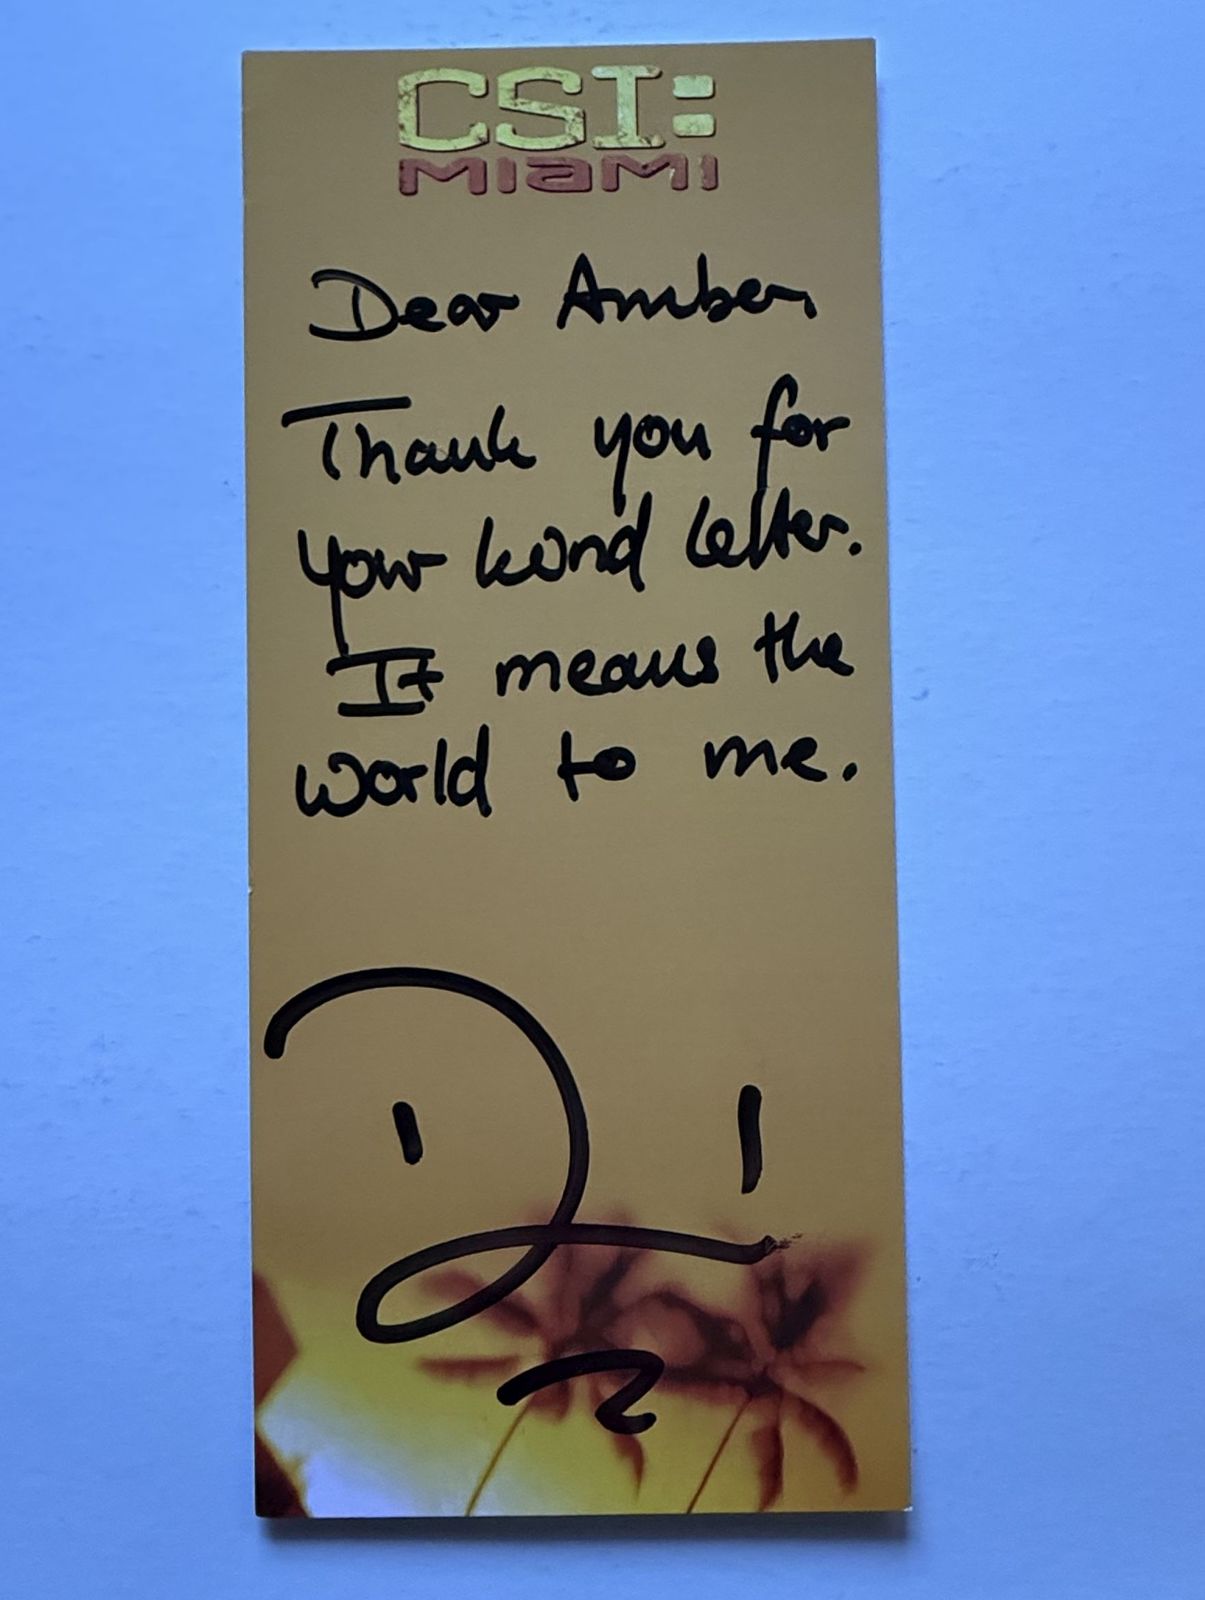 CSI:
MIAMI
Dear Amber,
Thank you for
your kind letter.
It means the
world to me.